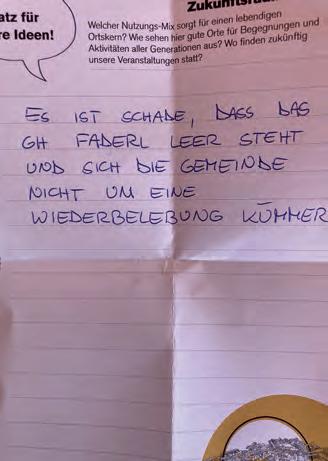 atz für
re Ideen!
Welcher Nutzungs-Mix sorgt für einen lebendigen
Ortskern? Wie sehen hier gute Orte für Begegnungen und
Aktivitäten aller Generationen aus? Wo finden zukünftig
unsere Veranstaltungen statt?
ES IST SCHADE, DASS DAS
GH FADERL LEER STEHT
UND SICH DIE GEMEINDE
NICHT UM EINE
WIEDERBELEBUNG KÜMMER